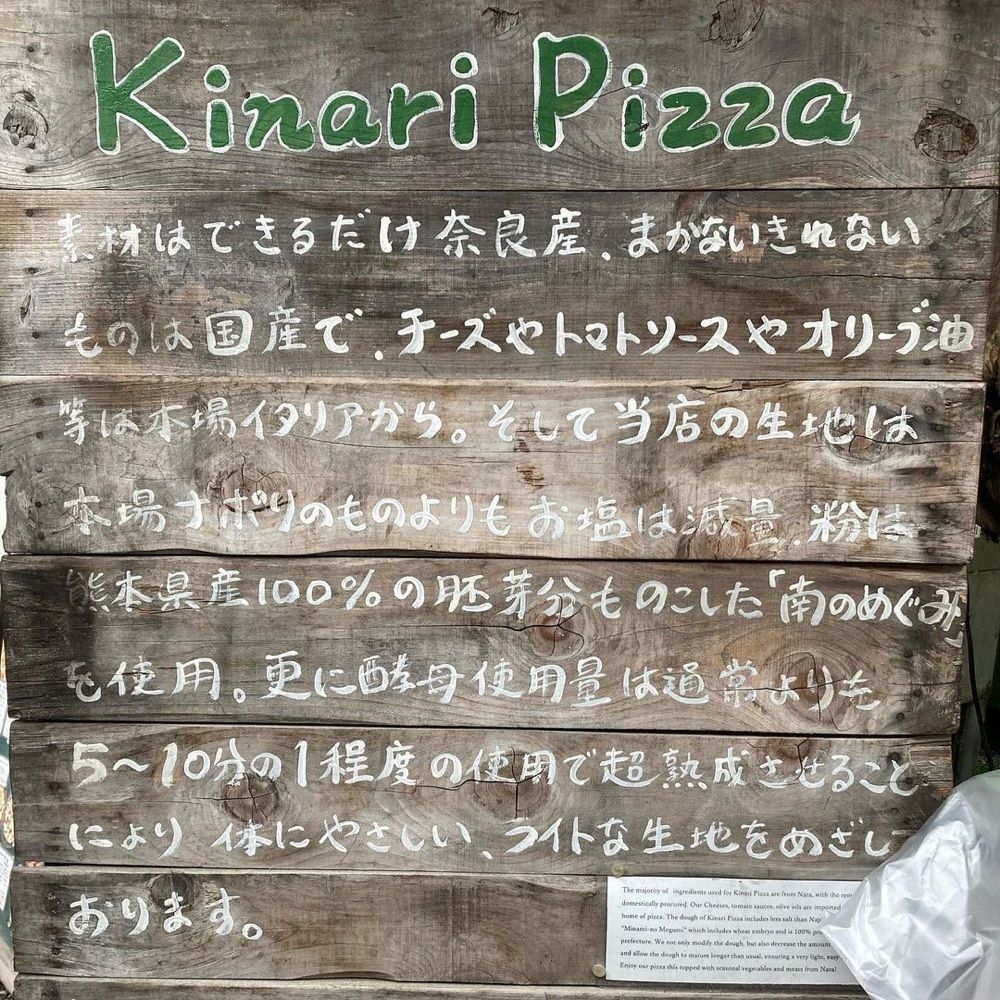 Kinari Pizza
素材はできるだけ奈良産、まかないきれない
ものは国産で、チーズやトマトソースやオリーブ油
等は本場イタリアから。そして当店の生地は
本場ナポリのものよりもお塩は減量、粉は
熊本県産100%の胚芽分ものこした「南のめぐみ」
を使用。更に酵母使用量は通常よりも
5〜10分の1程度の使用で超熟成させること
により体にやさしい、ライトな生地をめざし
おります。
The majority of ingredients used for Kinari Pizza are from Nara, with the
domestically procured. Our Cheeses, tomato sauces, olive oils are imported
home of pizza. The dough of Kinari Pizza includes less salt than
"Minami-no Megumi" which includes wheat embryo and is 100%
prefecture. We not only modify the dough, but also decrease the amount
and allow the dough to mature longer than usual, ensuring a very light, easy
Enjoy our pizza this topped with seasonal vegetables and meats from Nara!